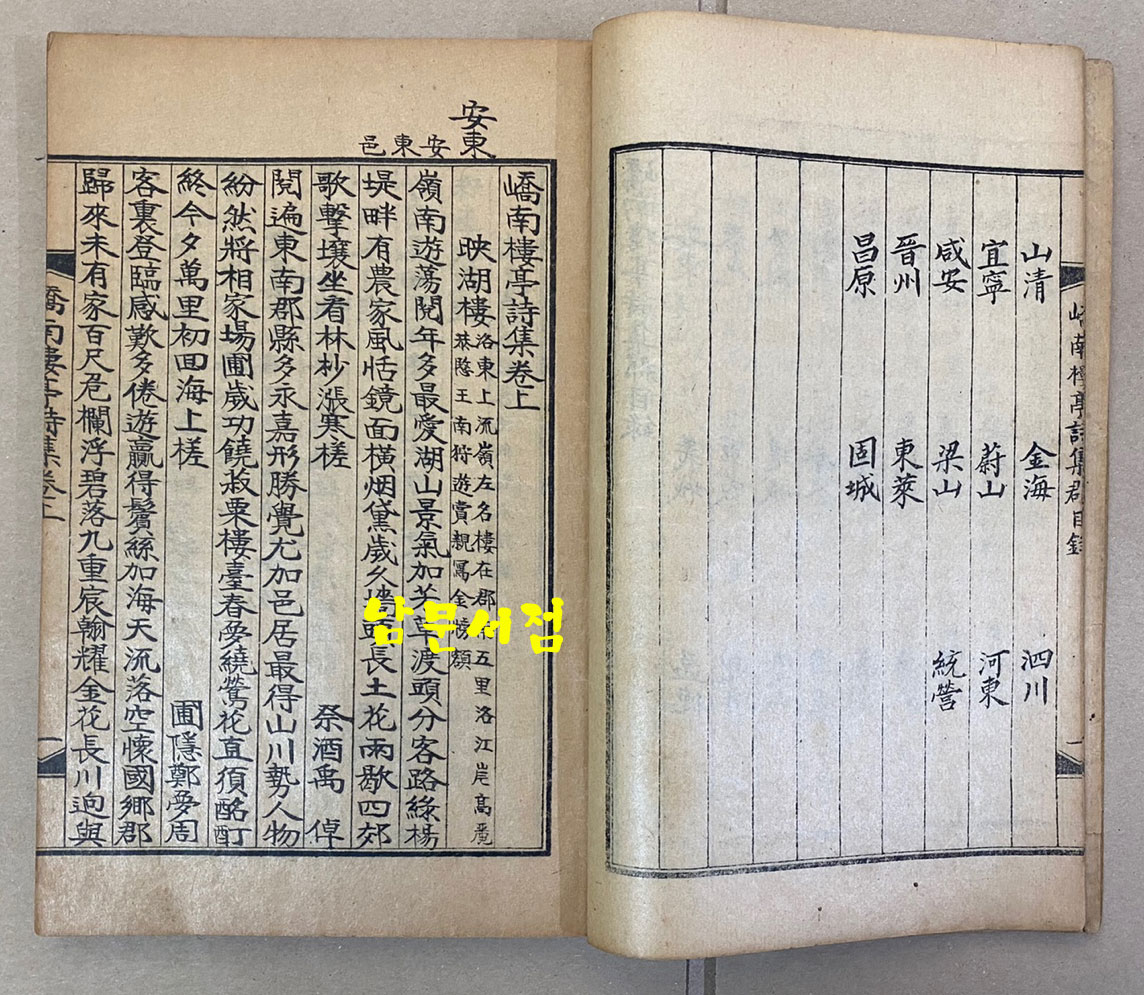 嶠南樓亭詩集郡目錄 一
山清 金海 泗川
宜寧 蔚山 河東
咸安 梁山 統營
晉州 東萊
昌原 固城
安東
安東邑
嶠南樓亭詩集卷上
映湖樓
洛東上流嶺左名樓在郡 五里洛江岸高麗
恭愍王南狩遊賞親寫金榜額
嶺南遊蕩閱年多最愛湖山景氣加芳草渡頭分客路綠楊
堤畔有農家風恬鏡面橫烟黛歲久墻頭長土花雨歇四郊
歌擊壤坐看林杪漲寒槎 祭酒禹 倬
閱遍東南郡縣多永嘉形勝覺尤加邑居最得山川勢人物
紛然將相家場圃歲功饒菽粟樓臺春夢繞鶯花直須酩酊
終今夕萬里初回海上槎 圃隱鄭夢周
客裏登臨感歎多倦遊贏得鬢絲加海天流落空懷國鄉郡
歸來未有家百尺危欄浮碧落九重宸翰耀金花長川逈與
嶠南樓亭詩集卷上 一
남문서점